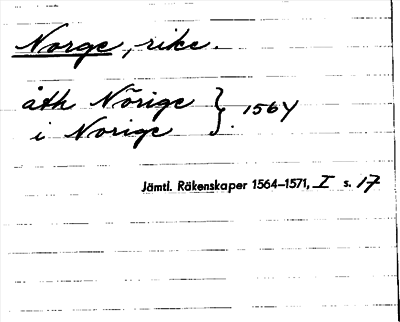 Norge, rike.
åth Nörige } 1564
i Norige
Jämtl. Räkenskaper 1564–1571, I s. 17